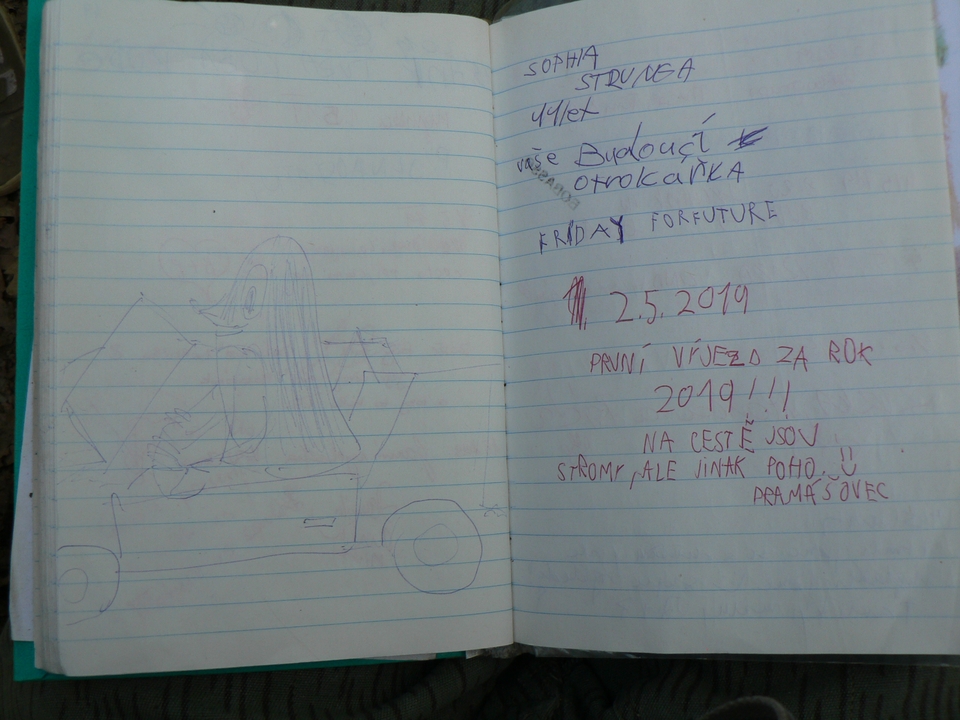 SOPHIA
STRUNGA
44let
vaše Budoucí
otrokářKA
FRIDAY FORFUTURE
2.5.2019
PRVNÍ VÍJEZD ZA ROK
2019!!!
NA CESTĚ JSOU
STROMY, ALE JINAK POHO.
PRAMÁŠOVEC